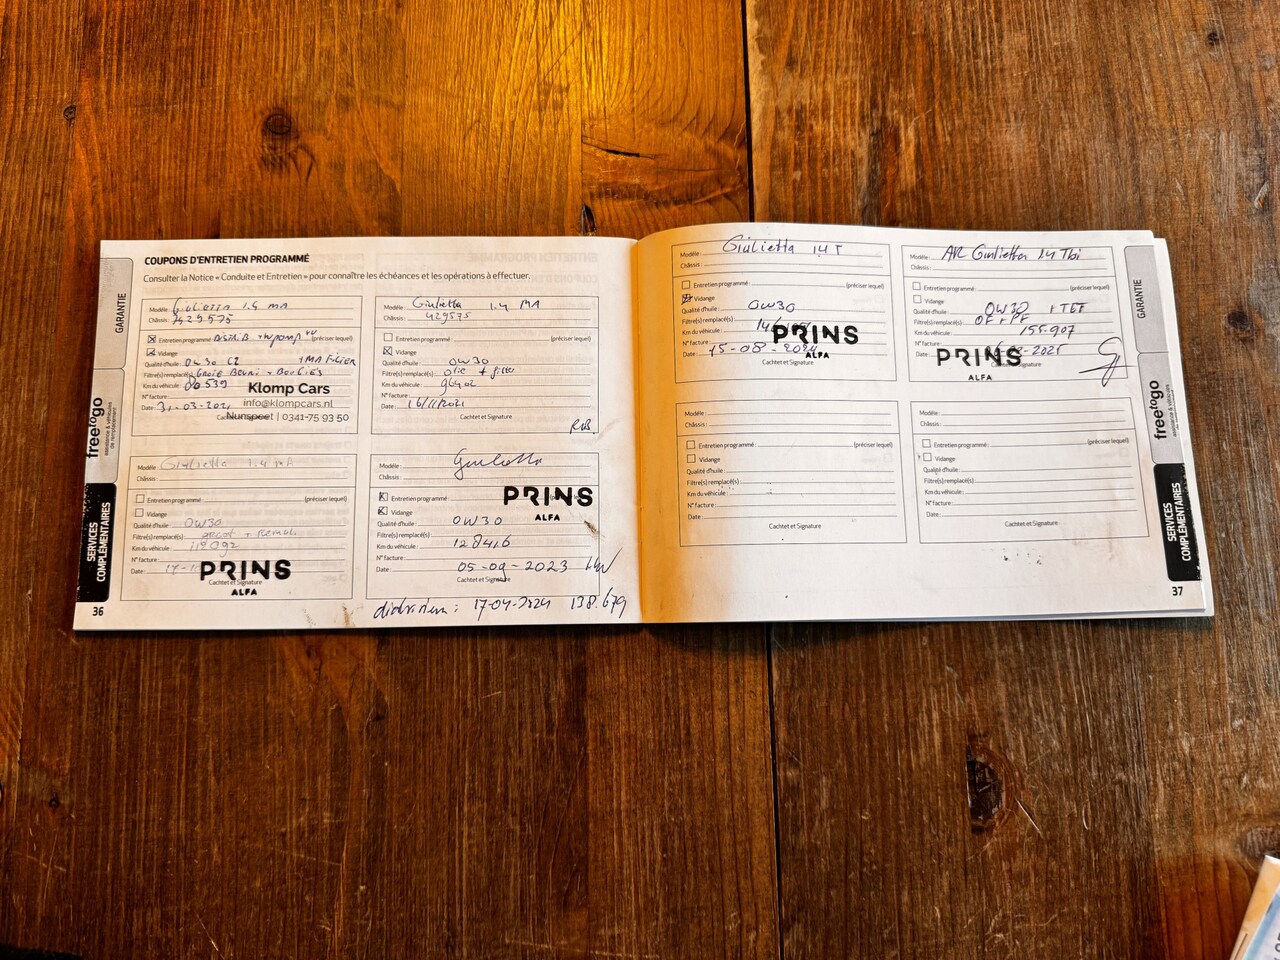 COUPONS D'ENTRETIEN PROGRAMMÉ
Consulter la Notice « Conduite et Entretien » pour connaître les échéances et les opérations à effectuer.
Modèle: Giulietta 1.4 MA
Châssis: 7429575
Entretien programmé: DISTRIB + (préciser lequel)
Vidange
Qualité d'huile: 0W30 C2
Filtre(s) remplacé(s)
Km du véhicule: 80539
N° facture
Date: 31-03-2021
Cachet et Signature
Klomp Cars
info@klompcars.nl
Nunspeet | 0341-75 93 50
Modèle: Giulietta 1.4 MA
Châssis: 429575
Entretien programmé: (préciser lequel)
Vidange
Qualité d'huile: 0W30
Filtre(s) remplacé(s): olie + filter
Km du véhicule: 96402
N° facture
Date: 16/11/2021
Cachet et Signature
Modèle: Giulietta 1.4 MA
Châssis:
Entretien programmé: (préciser lequel)
Vidange
Qualité d'huile: 0W30
Filtre(s) remplacé(s):
Km du véhicule: 112092
N° facture:
Date: 17-
Cachet et Signature
PRINS
ALFA
Modèle: Giulietta
Châssis:
Entretien programmé:
Vidange
Qualité d'huile: 0W30
Filtre(s) remplacé(s):
Km du véhicule: 128416
N° facture:
Date: 05-09-2023
Cachet et Signature
PRINS
ALFA
17-04-2024 138.679
36
GARANTIE
freetogo
assistance & véhicules de remplacement
SERVICES COMPLÉMENTAIRES
Modèle: Giulietta 1.4 T
Châssis:
Entretien programmé: (préciser lequel)
Vidange
Qualité d'huile: 0W30
Filtre(s) remplacé(s):
Km du véhicule:
N° facture:
Date: 15-08-2024
Cachet et Signature
PRINS
ALFA
Modèle: AR Giulietta 1.4 Tbi
Châssis:
Entretien programmé: (préciser lequel)
Vidange
Qualité d'huile: 0W30
Filtre(s) remplacé(s): OF + PF
Km du véhicule: 155.907
N° facture:
Date: 2025
Cachet et Signature
PRINS
ALFA
Modèle:
Châssis:
Entretien programmé: (préciser lequel)
Vidange
Qualité d'huile:
Filtre(s) remplacé(s):
Km du véhicule:
N° facture:
Date:
Cachet et Signature
Modèle:
Châssis:
Entretien programmé: (préciser lequel)
Vidange
Qualité d'huile:
Filtre(s) remplacé(s):
Km du véhicule:
N° facture:
Date:
Cachet et Signature
GARANTIE
freetogo
assistance & véhicules de remplacement
SERVICES COMPLÉMENTAIRES
37